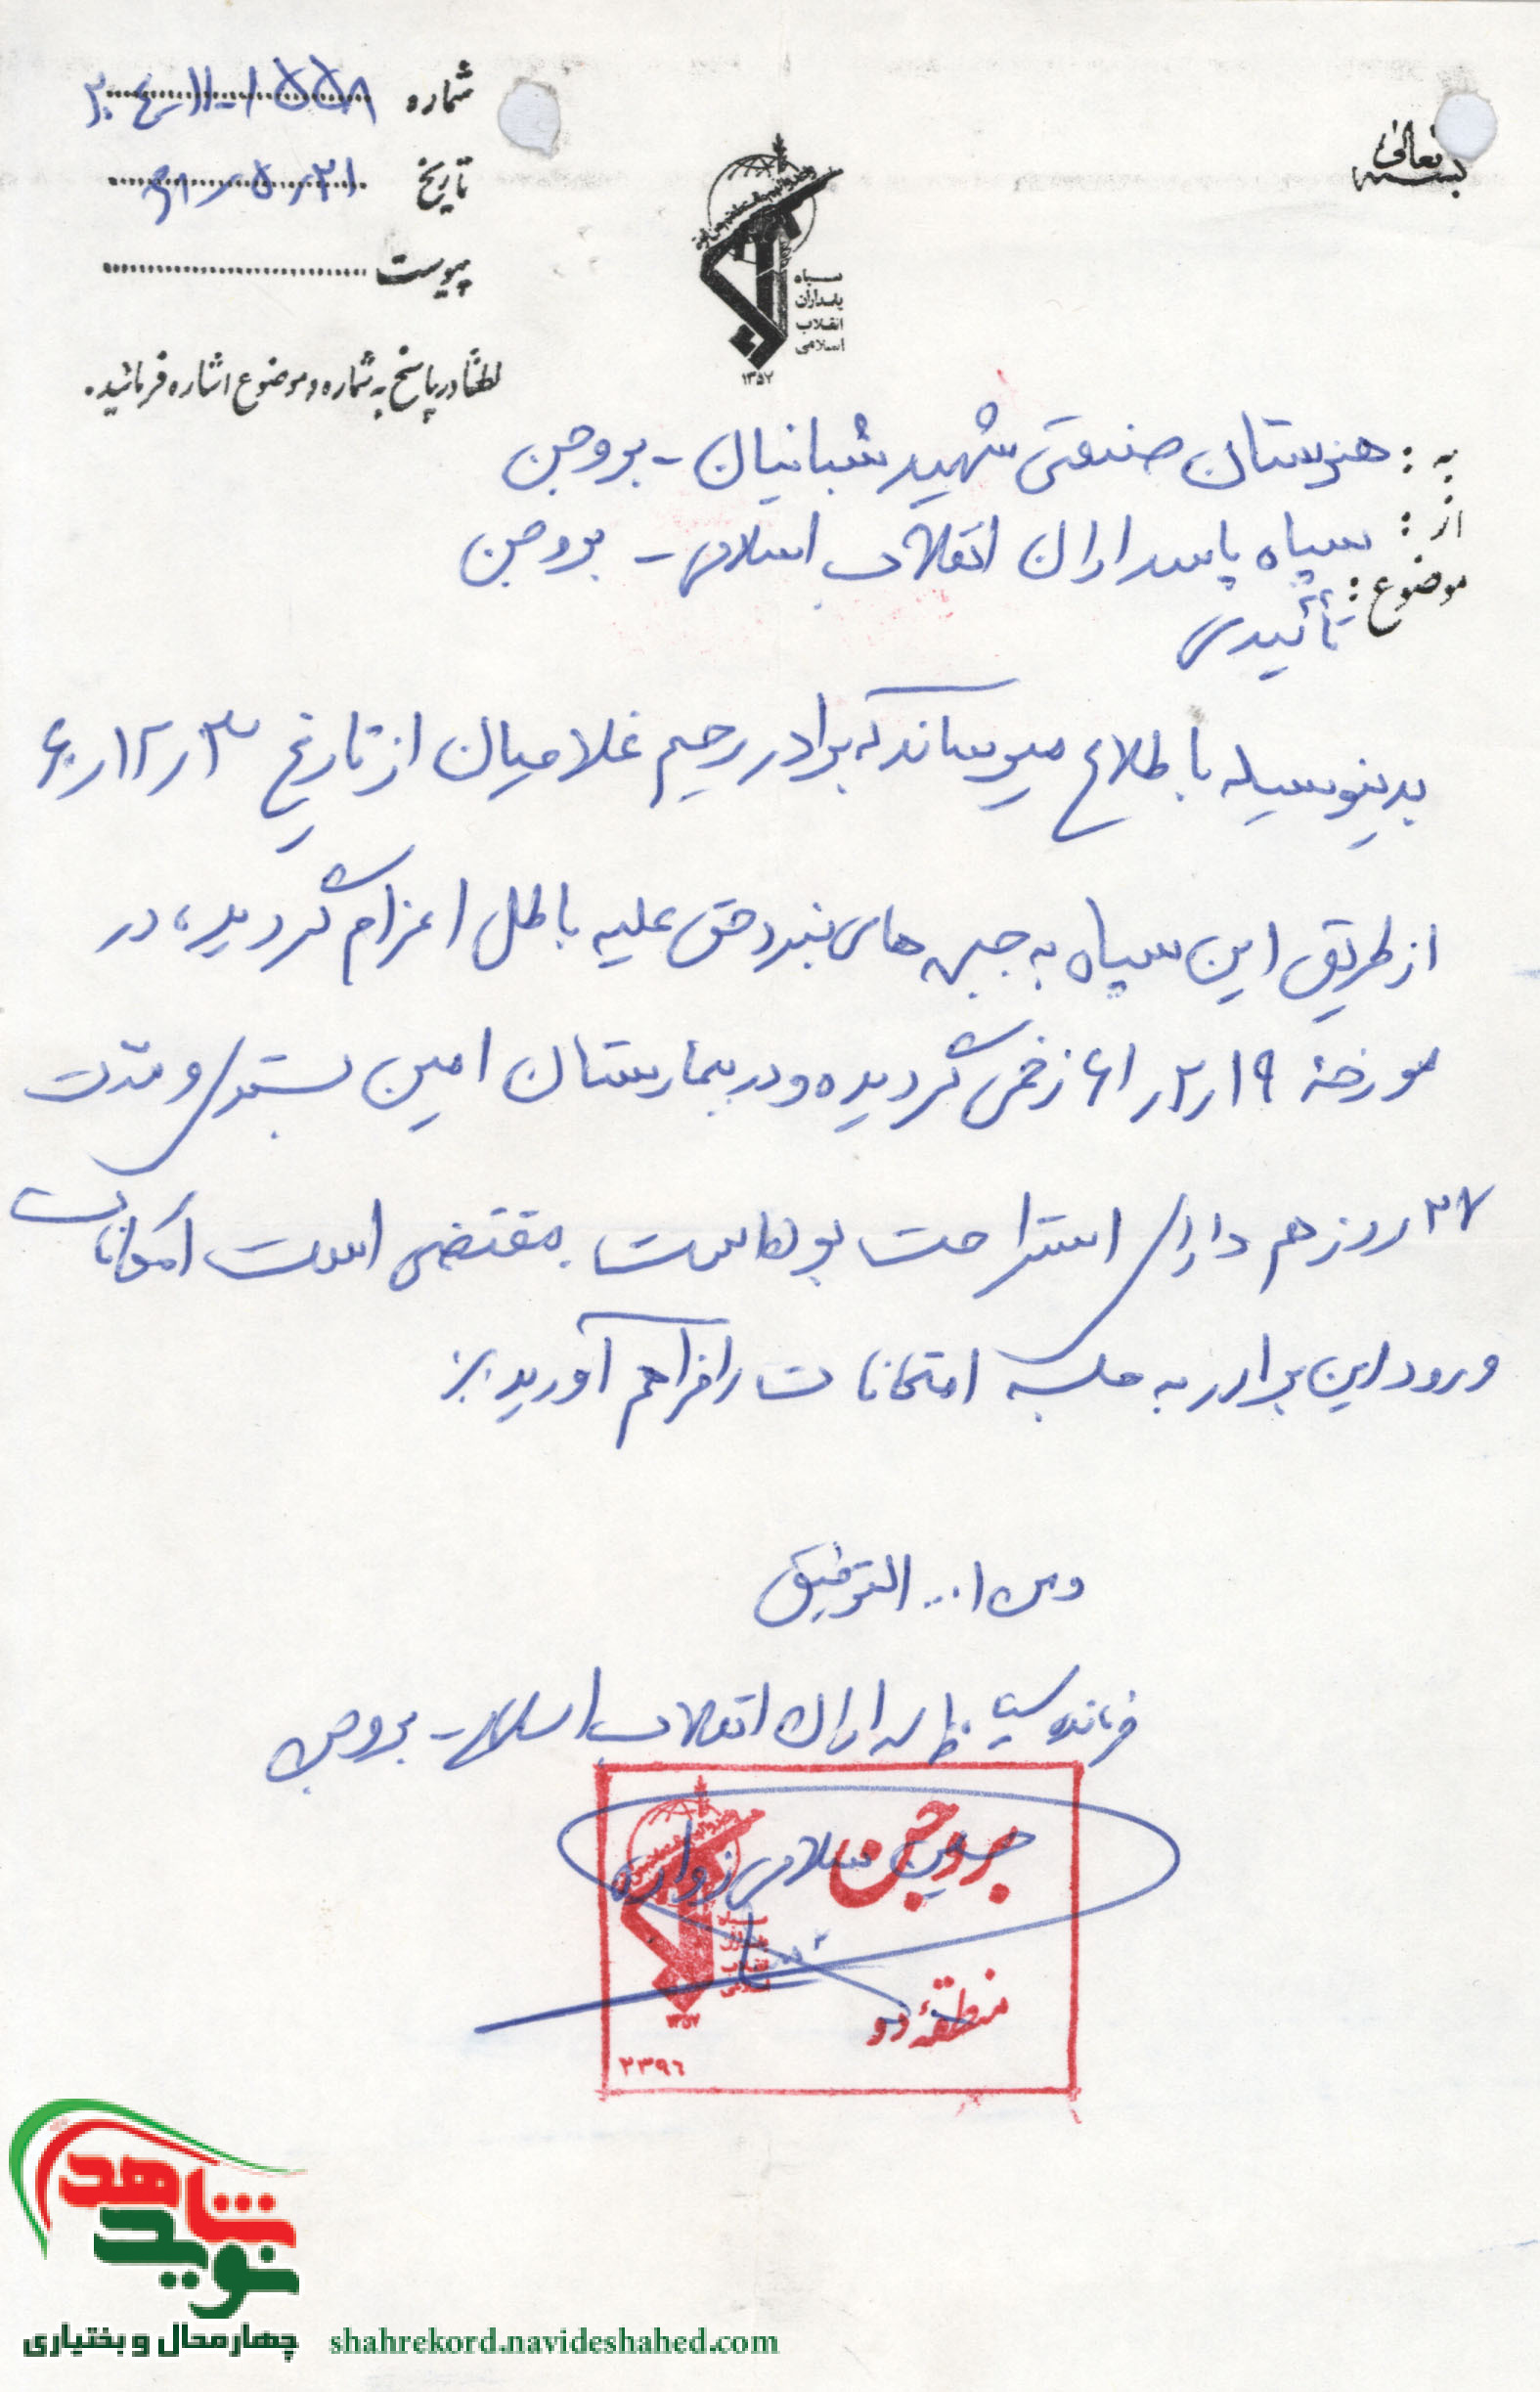 بسمه تعالی
شماره ۲۰-۴-۱۱-۱۵۵۸
تاریخ ۶۱/۵/۳۱
پیوست
لطفاً در پاسخ به شماره و موضوع اشاره فرمائید.
سپاه
پاسداران
انقلاب
اسلامی
۱۳۵۷
به : هنرستان صنعتی شهید شبانیان - بروجن
از : سپاه پاسداران انقلاب اسلامی - بروجن
موضوع : تأئیدی
بدینوسیله باطلاع میرساند که برادر رحیم غلامیان از تاریخ ۶۰/۱۲/۳
از طریق این سپاه به جبهه های نبرد حق علیه باطل اعزام گردید، در
مورخهٔ ۶۱/۲/۱۹ زخمی گردیده و در بیمارستان امین بستری و مدت
۲۷ روز هم دارای استراحت بوده است. مقتضی است امکانات
ورود این برادر به جلسه امتحانات را فراهم آورید.
ومن ا... التوفیق
فرمانده سپاه پاسداران انقلاب اسلامی - بروجن
بروجن
منطقهٔ دو
سپاه
پاسداران
انقلاب
اسلامی
۱۳۵۷
۲۳۹۶
نوید شاهد
چهارمحال و بختیاری
shahrekord.navideshahed.com